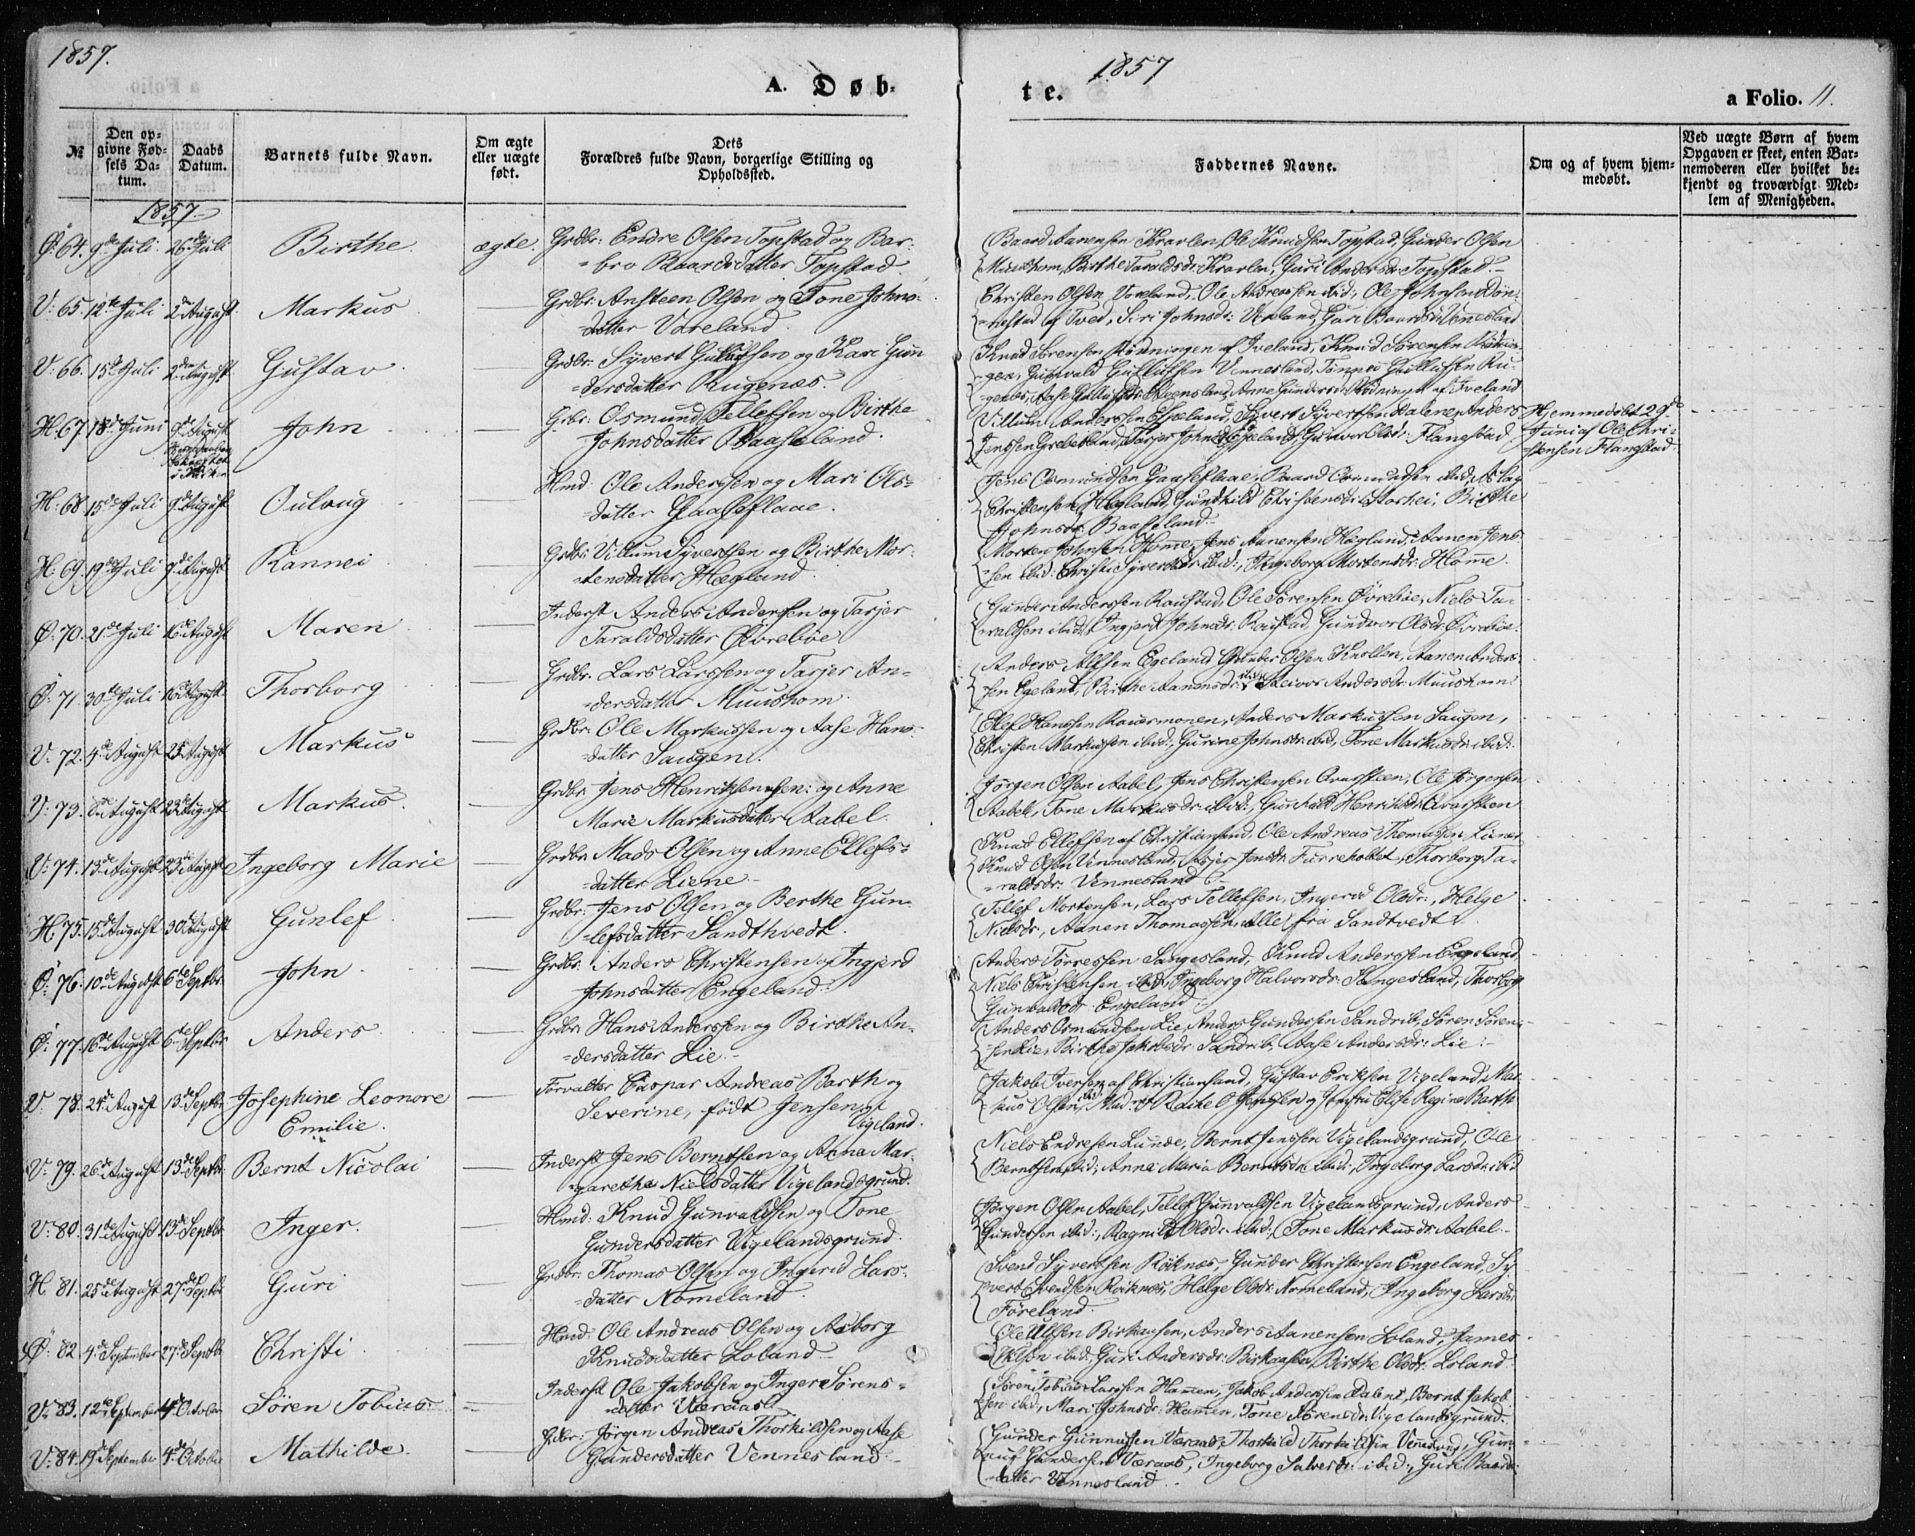 1857.
A. Døb-
1857
te.
a Folio. 11.
№
Den op-
givne Fød-
sels Da-
tum.
Daabs
Datum.
Barnets fulde Navn.
Om ægte
eller uægte
født.
Dets
Forældres fulde Navn, borgerlige Stilling og
Opholdssted.
Faddernes Navne.
Om og af hvem hjem-
medøbt.
Ved uægte Børn af hvem
Opgaven er skeet, enten Bar-
nemoderen eller hvilket be-
kjendt og troværdige Med-
lem af Menigheden.
1857
Ø. 64. 9de Juli 26de Juli Birthe ægte. Grdbr: Endre Olsen Topstad og Bar-
bro Baardsdatter Topstad.
Baard Aanensen Kraelen, Ole Knudsen Topstad, Gunder Olsen
Muushom, Birthe Taraldsdr: Kraelen, Guri Andersdr: Topstad.
V. 65. 12te Juli 2den August Markus Grdbr: Ansteen Olsen og Tone Johns-
datter Vareland.
Christen Olsen Vareland, Ole Andreassen ibid:, Ole Johnsen
af Tved, Siri Johnsdr:
V. 66. 15de Juli 2den August Gustav Grdbr: Syvert Gullufsen og Kari Gun-
dersdatter Rugenæs.
Knud Sørensen Ødningen af Iveland, Knud Sørensen
Gunvald Gullufsen Vennesland,
Anne Gundersdr: af Iveland
H. 67. 18de Juni 9de August John Grbr: Osmund Tellefsen og Birthe
Johnsdatter Baaseland.
Villum Anderssen Espeland, Syvert Syvertsen Dalene, Anders
Jenssen Grebestland, Gunvor Olsdr: Flanestad
Hjemmedøbt 29de
Juni af Ole Chri-
stensen Flanestad.
H. 68 15de Juli 9de August Oulaug Hmd: Ole Andersen og Mari Ols-
datter Gaaseflaae.
Jens Osmundsen Gaaseflaae, Baard Osmundsen ibid, Aslag
Christensen Hægland, Gunhild Christensdr: Storhei, Birthe
Johnsdr: Baaseland.
H. 69. 19de Juli 9de August Rannei Grdbr: Villum Syvertsen og Birthe Mor-
tensdatter Hægland.
Morten Johnsen Homme, Jens Aanensen Hægland, Aanen Jens-
sen ibid: Christi Syvertsdr: ibid:, Ingeborg Mortensdr: Homme.
Ø. 70. 21de Juli 16de August Maren Inderst Anders Andersen og Tarjer
Taraldsdatter Øvrebøe
Gunder Anderssen Raustad, Ole Sørensen Øvrebøe, Niels Ta-
raldsen ibid:, Ingjerd Johnsdr: Raustad, Gundvor Olsdr: Øvrebøe
Ø. 71. 30de Juli 16de August Thorborg Grdbr. Lars Larssen og Tarjer An-
dersdatter Muushom.
Anders Alfsen Egeland, Gunder Olsen Knollen, Aanen Anders-
sen Egeland, Birthe Aanensdr: ibid, Reivor Andersdr: Muushom
V. 72. 4de August 23de August Markus Grdbr: Ole Markussen og Aase Hans-
datter Saugen.
Ellef Hanssen Rauersmonen, Anders Markussen Saugen,
Christen Markussen ibid:, Gurine Johnsdr: ibid, Tone Markusdr: ibid:
V. 73. August 23de August Markus. Grdbr Jens Henriksen og Anne
Marie Markusdatter Aabel.
Jørgen Olsen Aabel, Jens Christensen Qvarsteen, Ole Jørgensen
Aabel, Tone Markusdr: ibid:, Henriksdr: Qvarsteen
V. 74. 13de August 23de August Ingeborg Marie Grdbr: Mads Olsen og Anne Ellefs-
datter Liene
Knud Ellefsen af Christiansand, Ole Andreas Thomassen Liene
Knud Olsen Vennesland, Asjer Jonsdr: Furreholtet, Thorborg Ta-
raldsdr: Vennesland
H. 75. 15de August 30de August Gunlef Grdbr: Jens Olsen og Berthe Gun-
lefsdatter Sandthvedt.
Tellef Mortensen, Lars Tellefsen, Ingerid Olsdr:, Helge
Nielsdr:, Aanen Thomassen, Alle fra Sandtvedt
Ø. 76. 10de August 6de Septbr John Grdbr. Anders Christensen og Ingjerd
Johnsdatter Engeland
Anders Torressen Langesland, Knud Anderssen Engeland,
Niels Christensen ibid, Ingeborg Halvorsdr: Langesland, Thorborg
Gunvaldsdr: Engeland
Ø. 77. 16de August 6de Septbr Anders Grdbr: Hans Anderssen og Birthe An-
dersdatter Lie.
Anders Osmundsen Lie, Anders Gundersen Sandrib, Søren Søren-
sen Lie, Birthe Jakobsdr: Sandrib, Aase Andersdr: Lie.
V. 78. 24de August 13de Septbr Josephine Leonore
Emilie. Forvalter Caspar Andreas Barth og
Severine, født Jensen
Vigeland.
Jakob Iversen af Christiansand, Gustav Eriksen Vigeland, Mar-
kus Olsen ibid, Jensen og Jomfru Elise Regine Barth
V. 79. 26de August 13de Septbr Bernt Nicolai Inderst Jens Berntsen og Anna Mar-
garetha Nielsdatter Vigelandsgrund.
Niels Endresen Lunde, Bernt Jenssen Vigelandsgrund, Ole
Berntsen ibid:, Anne Maria Berntsdr. ibid:, Ingeborg Larsdr: ibid
V. 80. 31de August 13de Septbr Inger. Hmd: Knud Gunvaldsen og Tone
Gundersdatter Vigelandsgrund.
Jørgen Olsen Aabel, Tellef Gunvaldsen Vigelandsgrund, Anders
Gundersen ibid:, Ragnild Olsdr: ibid:, Tone Markusdr: Aabel.
H 81. 25de August 27de Septbr Guri Grdbr: Thomas Olsen og Ingerid Lars-
datter Nomeland.
Svend Syvertsen Røiknæs, Gunder Christensen Engeland, Sy-
vert Svendsen Røiknæs, Helge Olsdr: Nomeland, Ingeborg Larsdr:
Føreland.
Ø. 82. 4de September 27de Septbr Christi Hmd: Ole Andreas Olsen og Asborg
Knudsdatter Loland.
Ole Ulfsen Birkaasen, Anders Aanensen Loland, James
Olsen ibid: Guri Andersdr: Birkaasen, Birthe Olsdr: Loland
V. 83. 12te September 4de October Søren Tobias. Inderst Ole Jakobsen og Inger Sørens-
datter Væraas
Søren Tobias Larssen Hamen, Jakob Anderssen Dalene, Bernt Jakob-
sen ibid, Mari Johnsdr: Hamen, Tone Sørensdr: Vigelandsgrund.
V. 84. 19de September 4de October Mathilde Grdbr: Jørgen Andreas Thorkildsen og Aase
Gundersdatter Vennesland.
Gunder Gunnufsen Væraas, Thorkild Thorkildsen Gun-
nuf Gundersen Væraas, Ingeborg Salvesdr: ibid:, Guri Baards-
datter Vennesland.